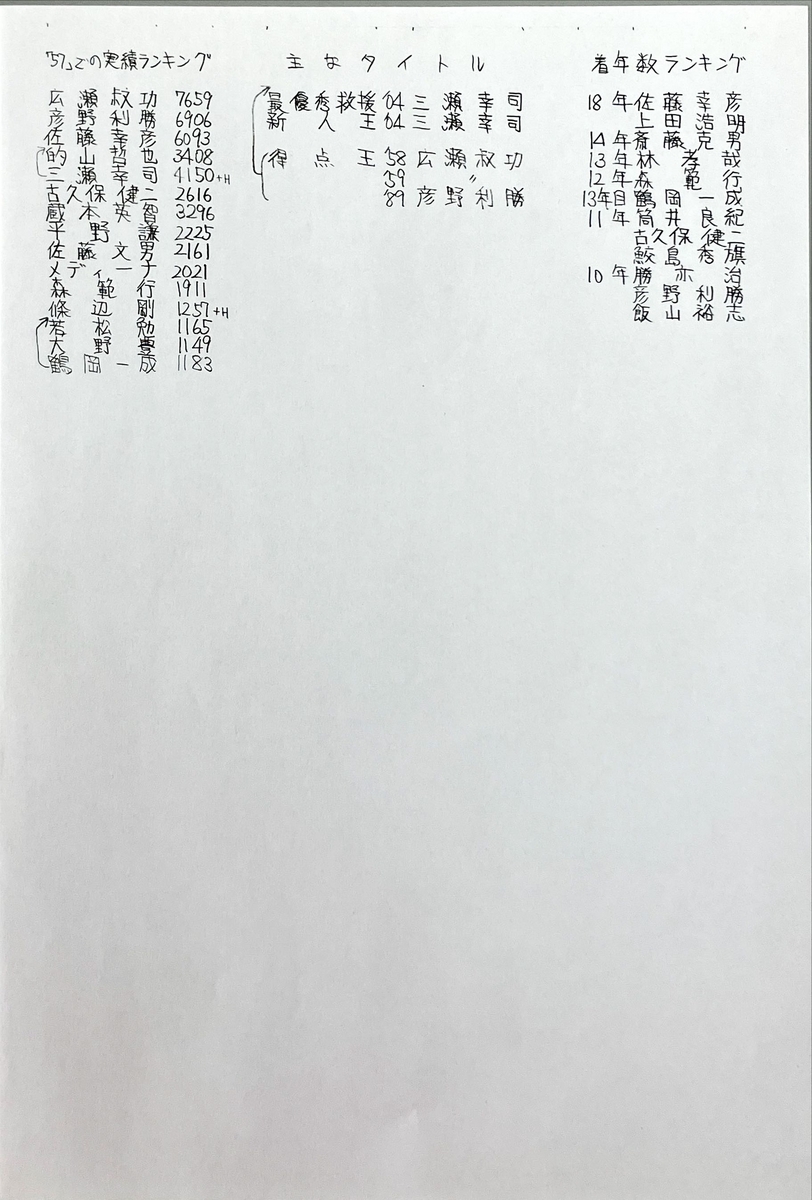 「57」での実績ランキング
広瀬叔功 7659
彦野利勝 6906
佐藤幸彦 6093
的山哲也 3408
三瀬幸司 4150+H
古久保健二 2616
蔵本英智 3296
平野謙 2225
佐藤文男 2161
メディーナ 2021
森範行 1911
條辺剛 1257+H
若松勉 1165
大野豊 1149
鶴岡一成 1183
主なタイトル
最優秀救援 '04 三瀬幸司
新人王 '04 三瀬幸司
得点王 '58 広瀬叔功
'59 〃
'89 彦野利勝
着年数ランキング
18年 佐藤幸彦
上田浩明
14年 斎藤克男
13年 林孝哉
12年 森範行
13年目 鶴岡一成
11年 筒井良紀
古久保健二
鮫島秀旗
10年 勝亦治
彦野利勝
飯山裕志